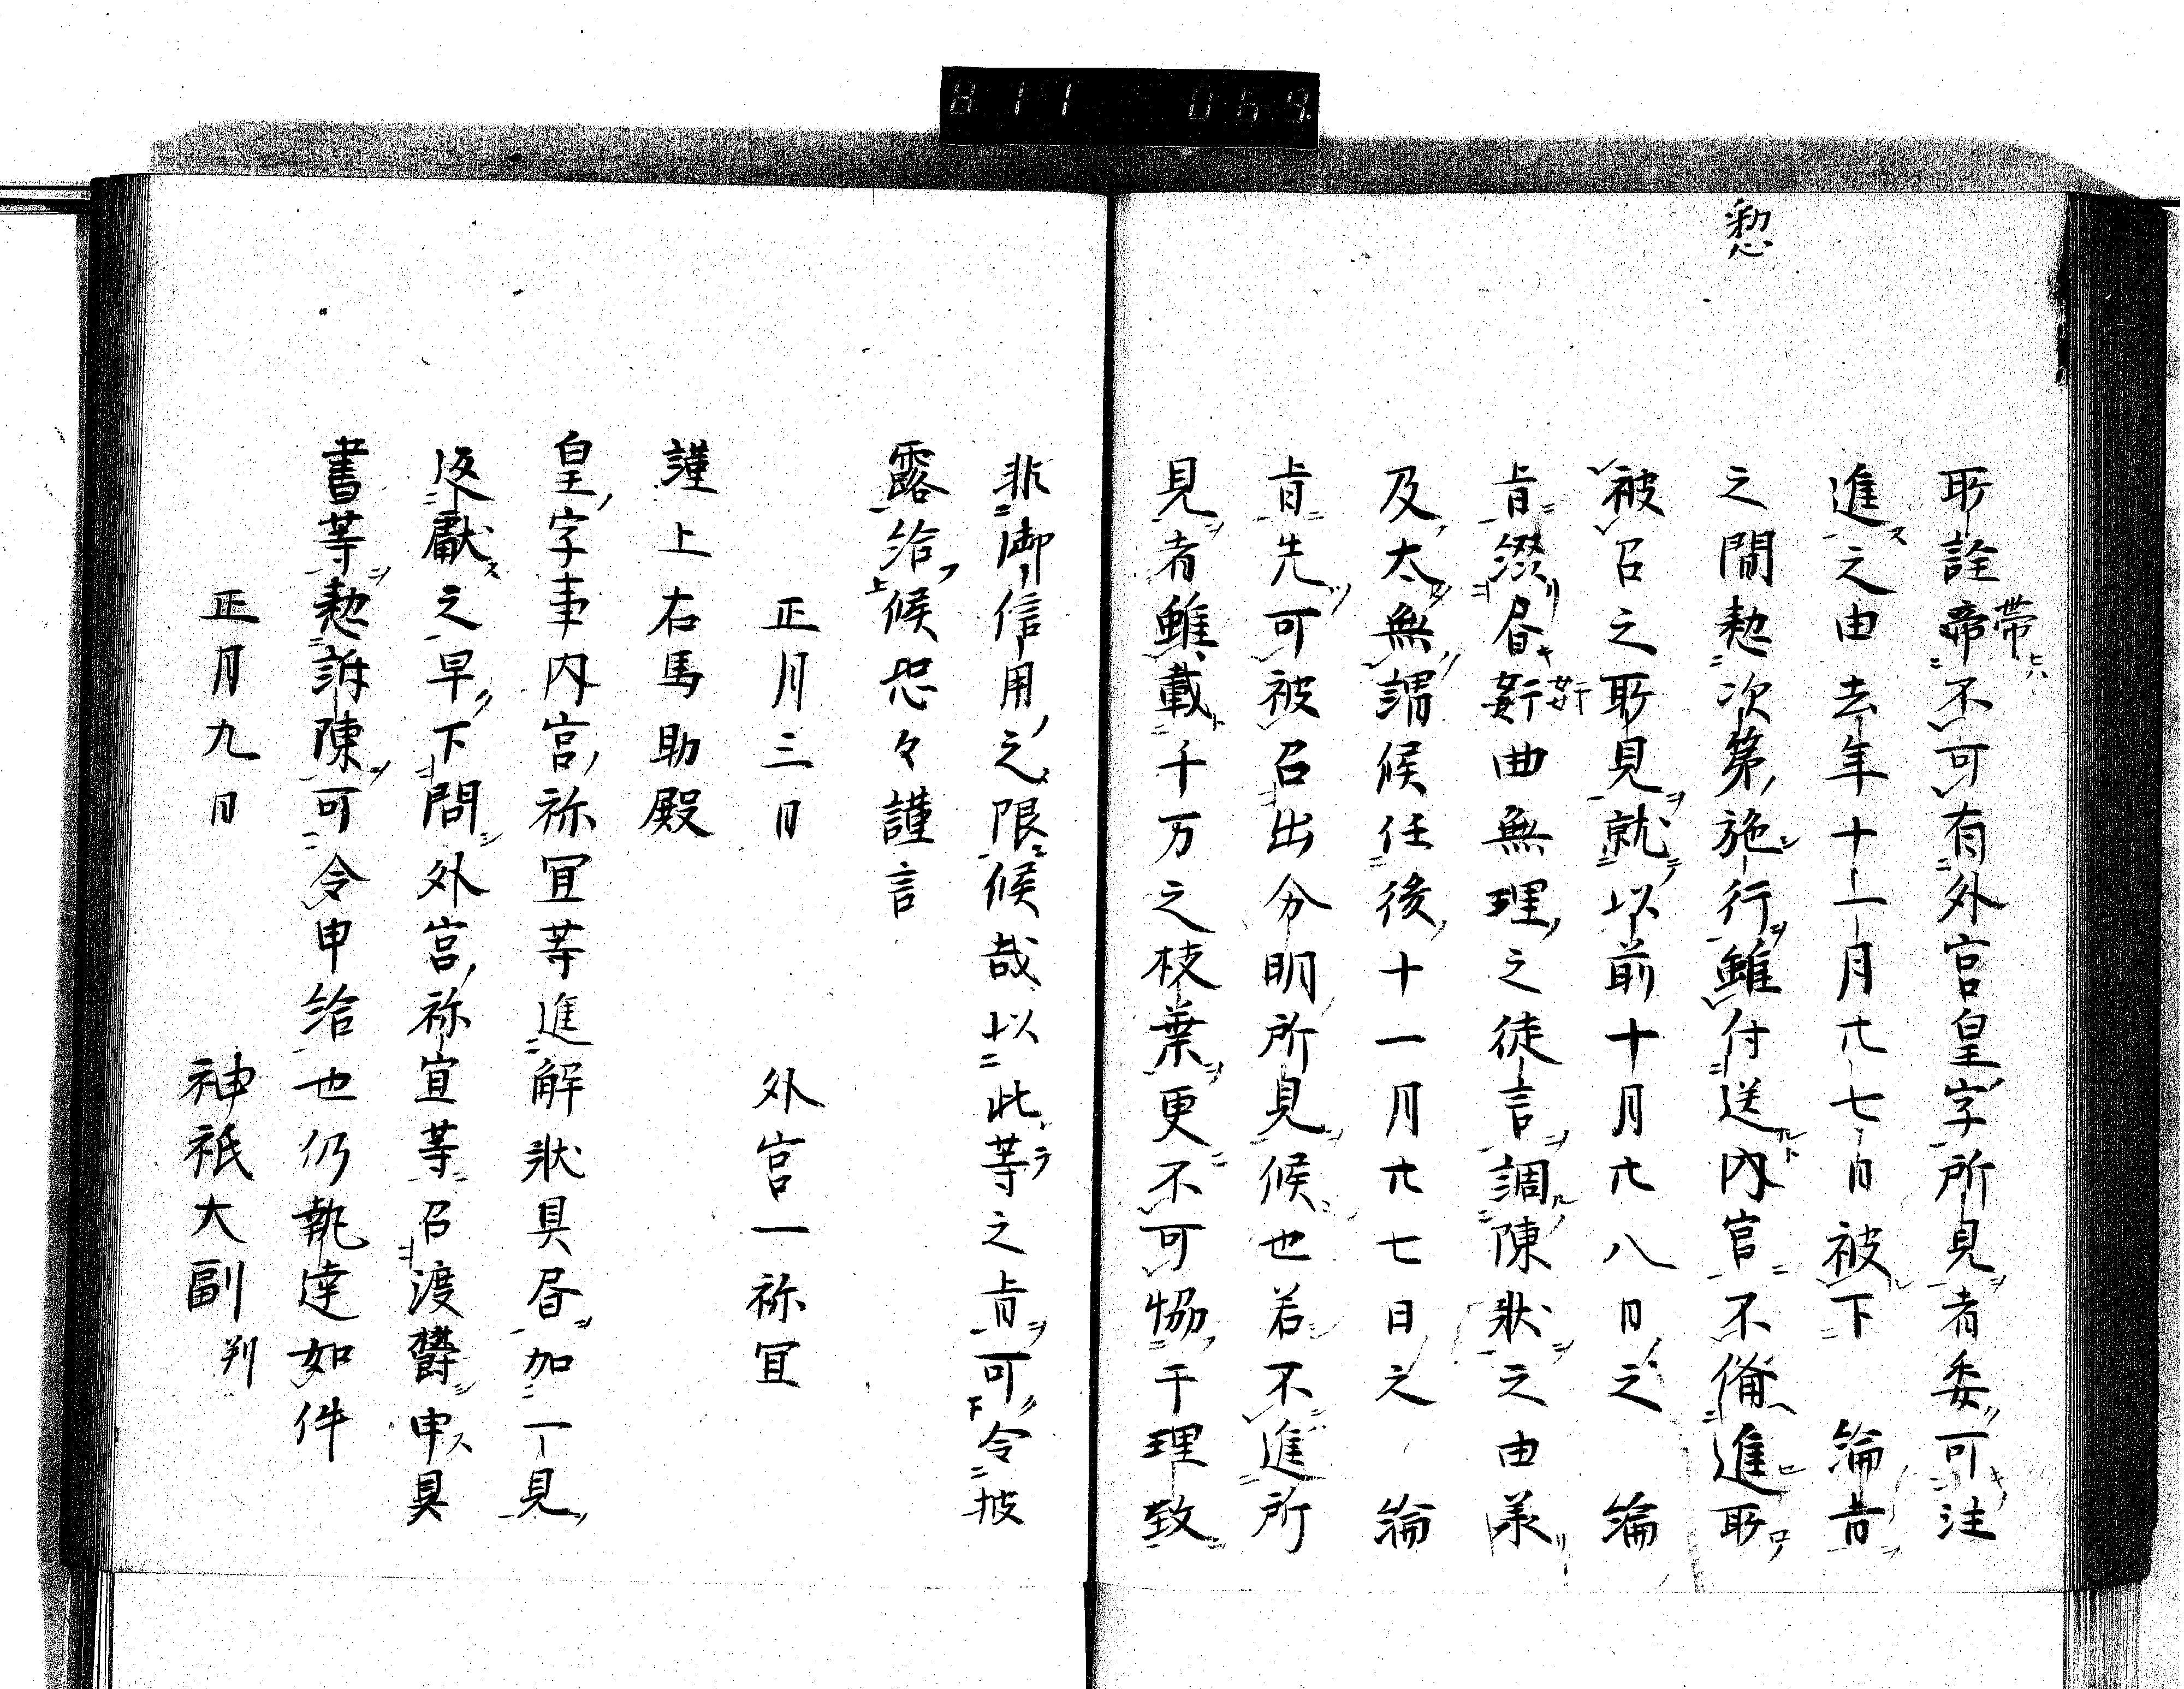 愸
所詮帯不可有外宮皇字所見者委可注
進之由去年十二月廿七日被下 綸旨
之間愸次第施行雖付送内宮不備進所
被召之所見就以前十月廿八日之 綸
旨綴眉姧曲無理之徒言調陳状之由承
及太無謂候任後十一月廿七日之 綸
旨先可被召出分明所見候也若不進所
見者雖載千万之枝葉更不可協于理致
非御信用之限候哉以此等之旨可令披
露給候恐々謹言
正月三日 外宮一祢宜
謹上右馬助殿
皇字事内宮祢宜等進解状具眉加一見
返献之早下問外宮祢宜等召渡欝申具
書等愸訴陳可令申給也仍執達如件
正月九日 神祇大副判